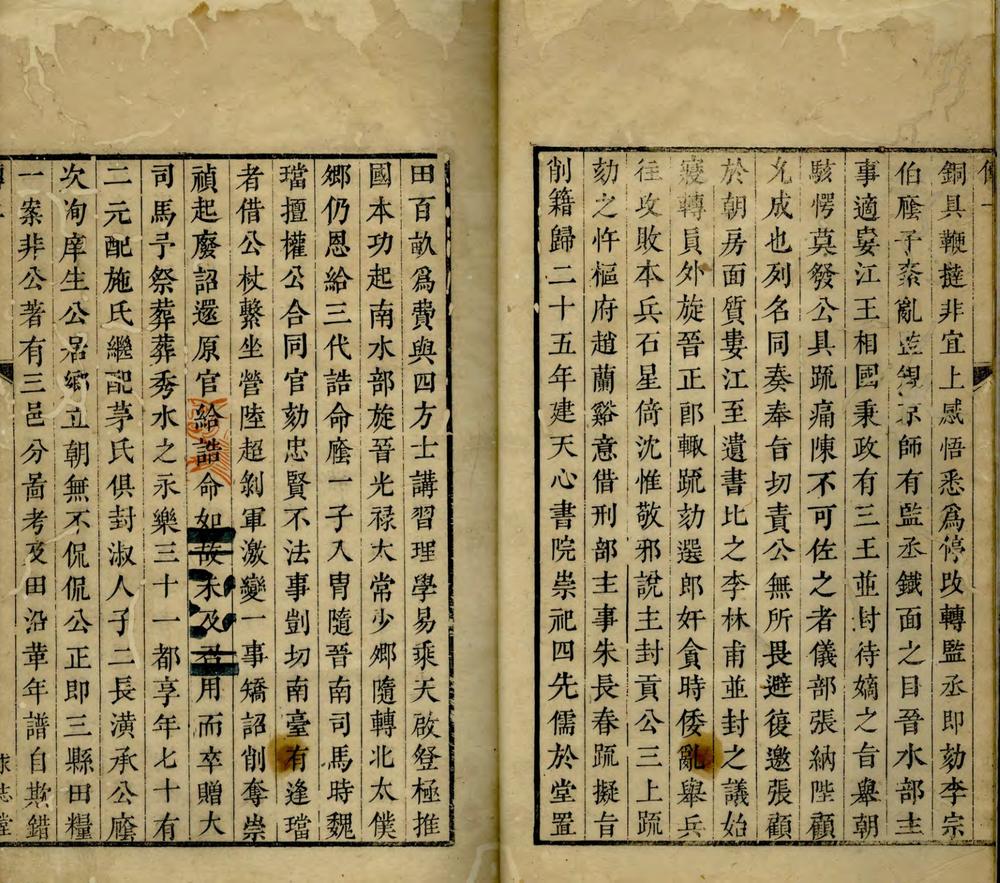 銅具鞭撻非宜上感悟悉爲停改轉監丞即劾李宗
伯廕子紊亂監規京師有監丞鐵面之目晉水部主
事適婁江王相國秉政有三王並封待嫡之旨舉朝
駭愕莫發公具疏痛陳不可佐之者儀部張納陛顧
允成也列名同奏奉旨切責公無所畏避復邀張顧
於朝房面質婁江至遺書比之李林甫並封之議始
寢轉員外旋晉正郎輙疏劾選郎奸貪時倭亂舉兵
往攻敗本兵石星倚沈惟敬邪說主封貢公三上疏
劾之忤樞府趙蘭谿意借刑部主事朱長春疏擬旨
削籍歸二十五年建天心書院崇祀四先儒於堂置
田百畝爲費與四方士講習理學易乘天啟登極推
國本功起南水部旋晉光禄太常少卿隨轉北太僕
鄉仍恩給三代誥命廕一子入冑隨晉南司馬時魏
璫擅權公合同官劾忠賢不法事剴切南臺有逢璫
者借公杖繫坐營陸超剝軍激變一事矯詔削奪崇
禎起廢詔還原官給誥命如故未及召用而卒贈大
司馬予祭葬葬秀水之永樂三十一都享年七十有
二元配施氏繼配茅氏俱封淑人子二長潢承公廕
次洵庠生公居鄉立朝無不侃侃公正即三縣田糧
一案非公著有三邑分啚考及田沿革年譜自欺錯